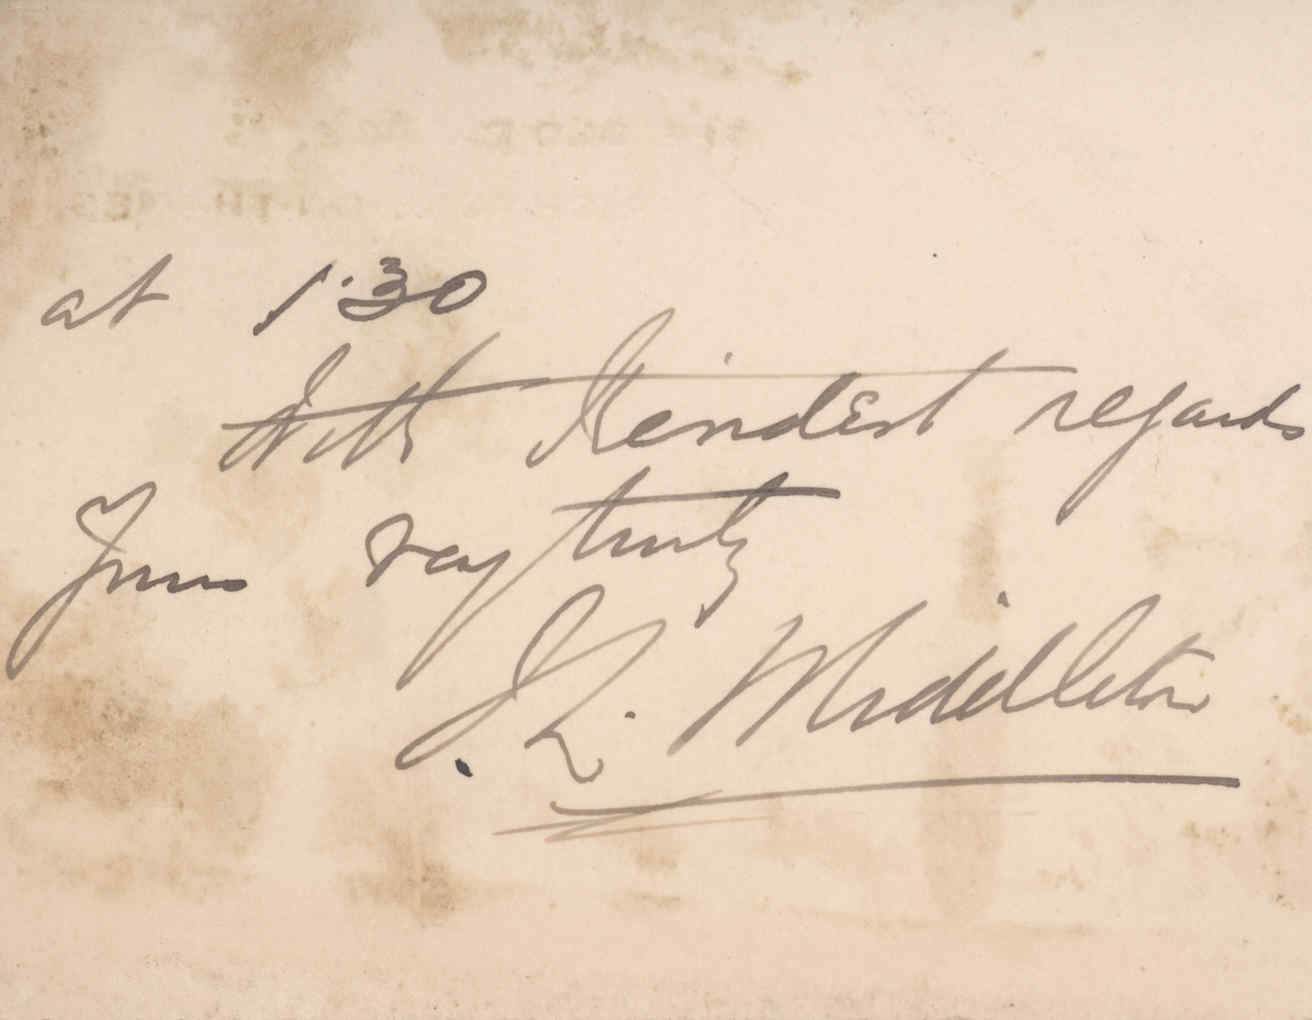 at 1.30
With Kindest regards
Yours very truly
J. Middleton